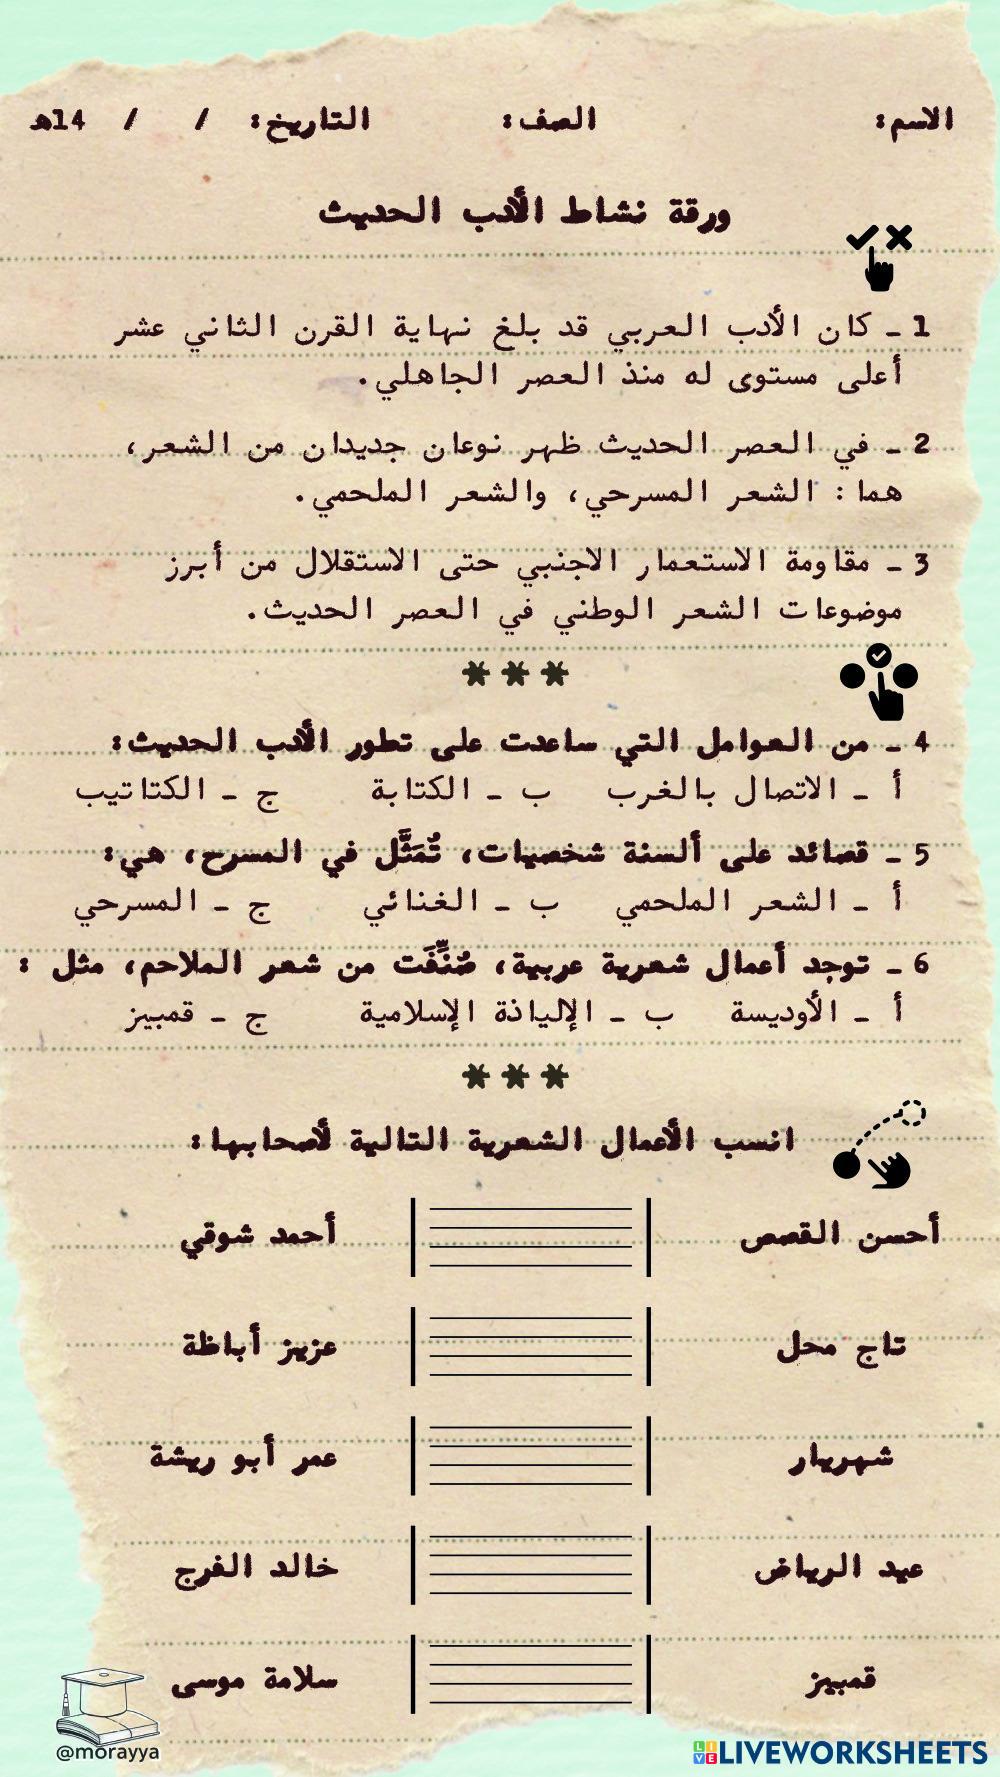 الاسم: الصف: التاريخ: / / 14هـ
ورقة نشاط الأدب الحديث
1 ـ كان الأدب العربي قد بلغ نهاية القرن الثاني عشر
أعلى مستوى له منذ العصر الجاهلي.
2 ـ في العصر الحديث ظهر نوعان جديدان من الشعر،
هما: الشعر المسرحي، والشعر الملحمي.
3 ـ مقاومة الاستعمار الاجنبي حتى الاستقلال من أبرز
موضوعات الشعر الوطني في العصر الحديث.
***
4 ـ من العوامل التي ساعدت على تطور الأدب الحديث:
أ ـ الاتصال بالغرب ب ـ الكتابة ج ـ الكتاتيب
5 ـ قصائد على ألسنة شخصيات، تُمَثَّل في المسرح، هي:
أ ـ الشعر الملحمي ب ـ الغنائي ج ـ المسرحي
6 ـ توجد أعمال شعرية عربية، صُنِّفَت من شعر الملاحم، مثل :
أ ـ الأوديسة ب ـ الإلياذة الإسلامية ج ـ قمبيز
***
انسب الأعمال الشعرية التالية لأصحابها:
أحسن القصص أحمد شوقي
تاج محل عزيز أباظة
شهريار عمر أبو ريشة
عيد الرياض خالد الفرج
قمبيز سلامة موسى
@morayya
LIVEWORKSHEETS